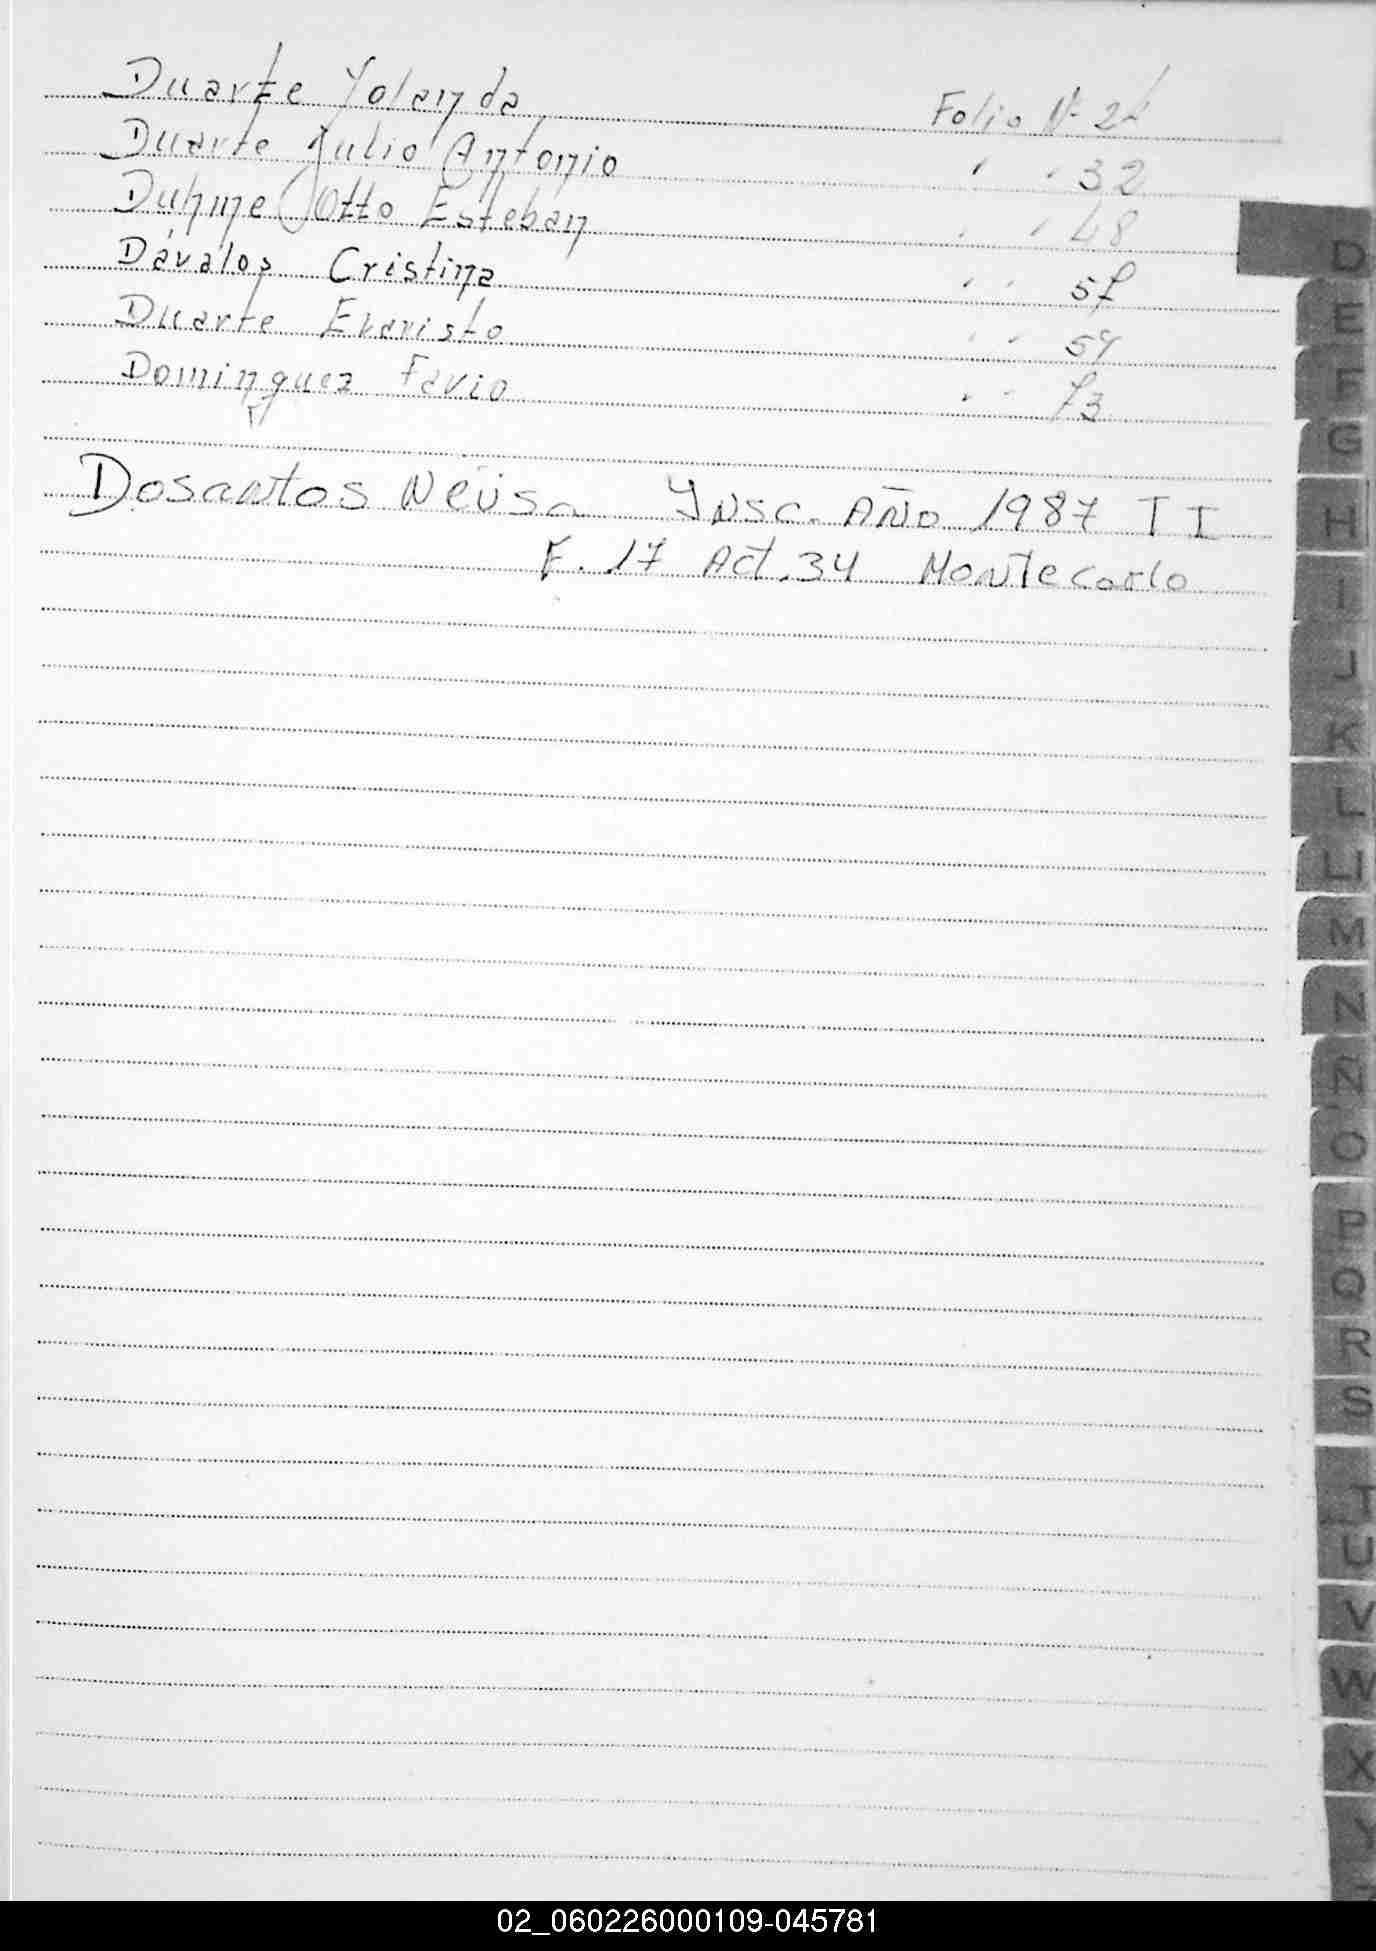 Duarte Yolanda Folio Nº 24
Duarte Julio Antonio " " 32
Duhme Otto Esteban " " 48
Dávalos Cristina " " 57
Duarte Evaristo " " 59
Dominguez Favio " " 73
Dosantos Neusa Ynsc. Año 1987 T I
F. 17 Act. 34 Montecarlo
D
E
F
G
H
I
J
K
L
LL
M
N
Ñ
O
P
Q
R
S
T
U
V
W
X
Y
02_060226000109-045781